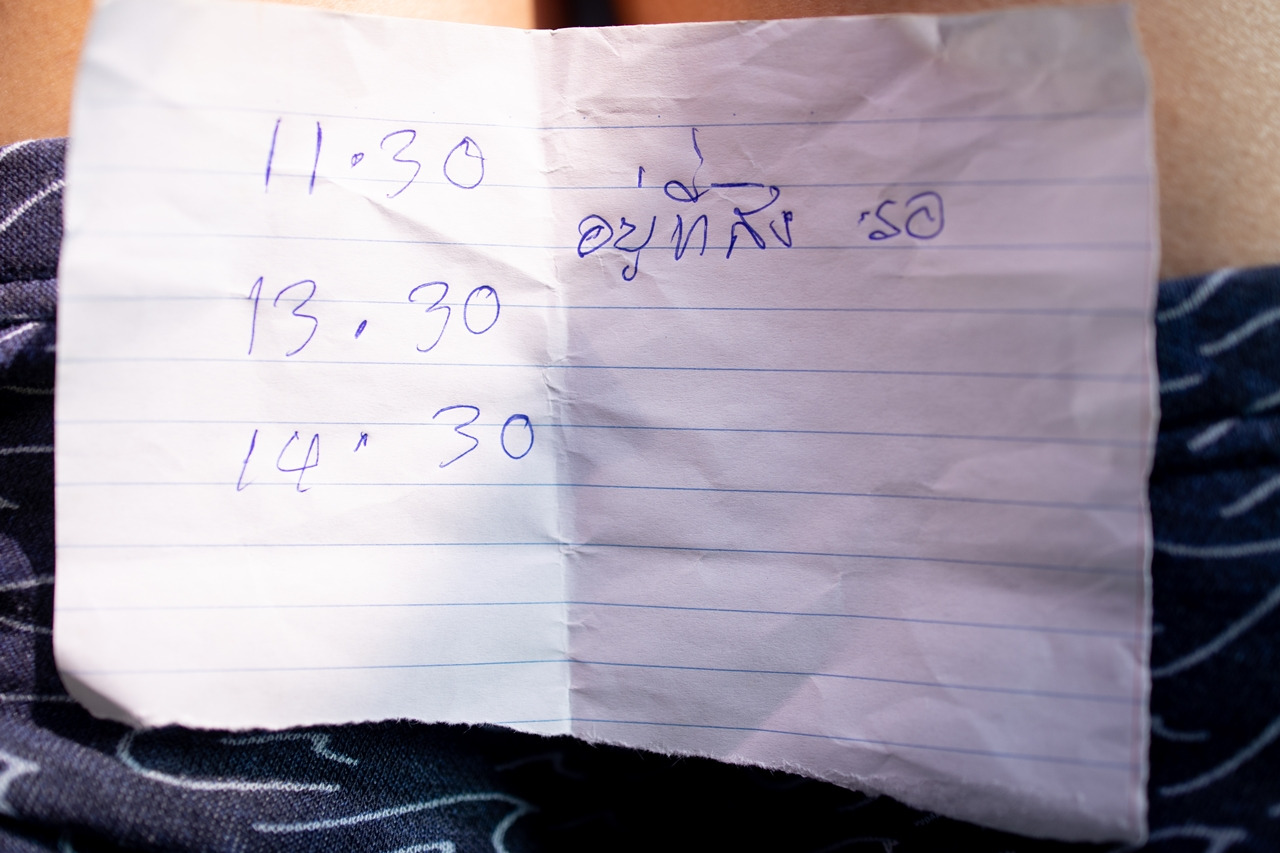 11.30 อยู่ที่สัง รอ
13.30
14.30